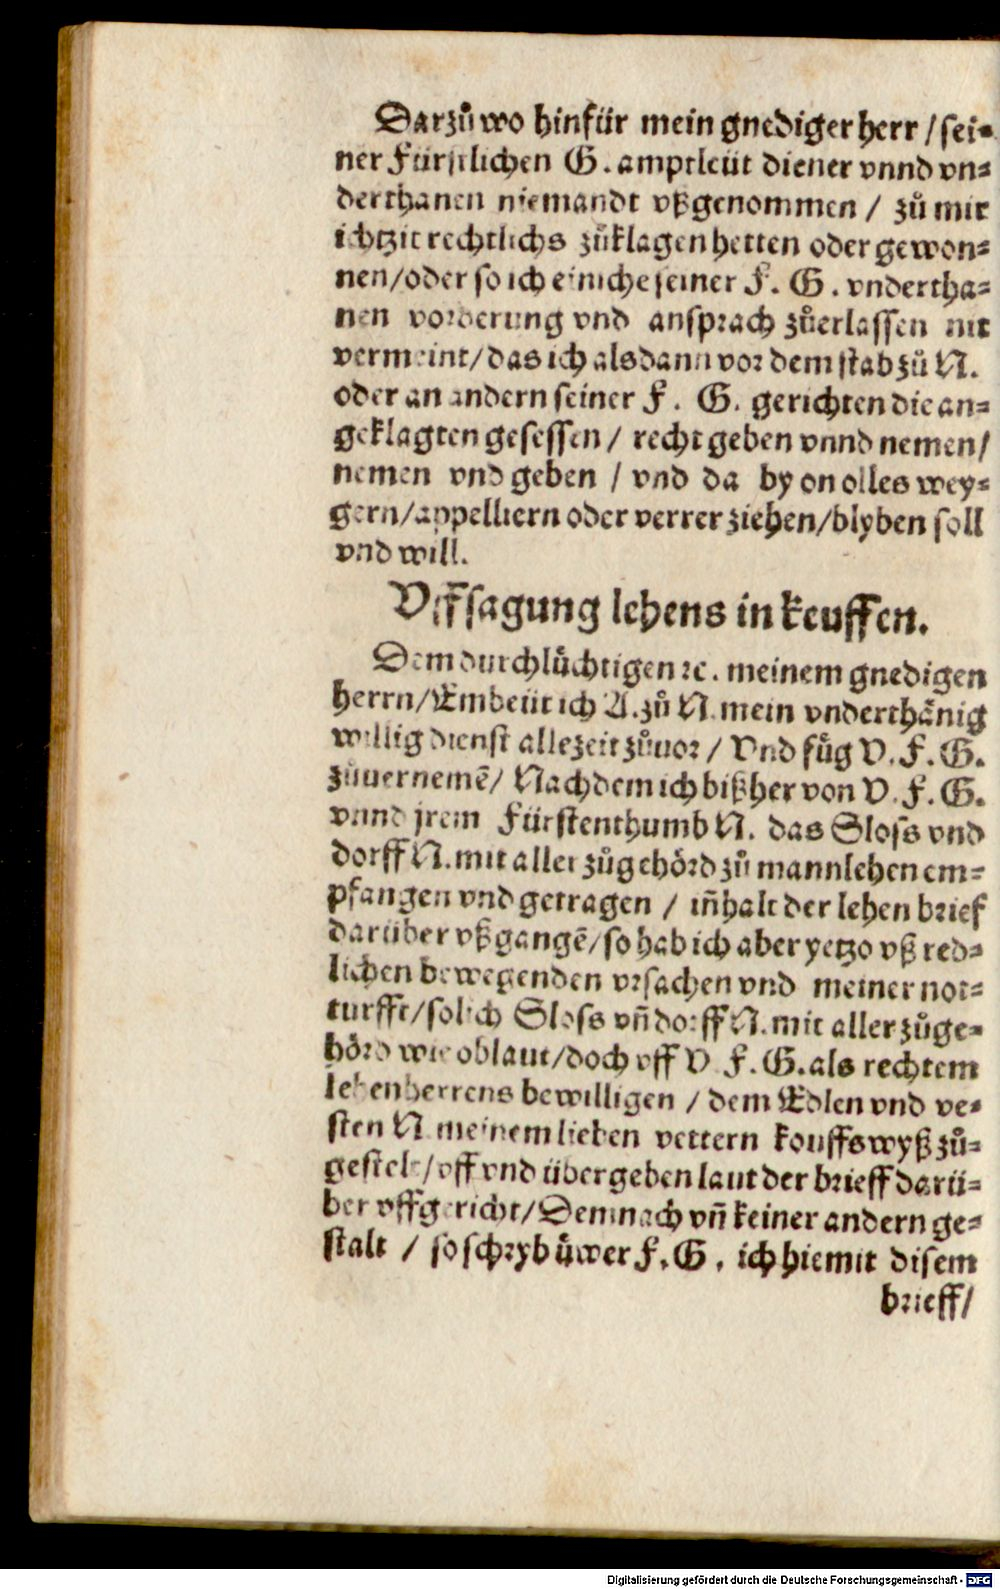 Darzů wo hinfür mein gnediger herr / sei⸗
ner Fürstlichen G. amptleüt diener vnnd vn⸗
derthanen niemandt vßgenommen / zů mir
ichtzit rechtlichs zůklagen hetten oder gewon⸗
nen/oder so ich einiche seiner F. G. vndertha⸗
nen vorderung vnd ansprach zůerlassen nit
vermeint/das ich alsdann vor dem stab zů N.
oder an andern seiner F. G. gerichten die an⸗
geklagten gesessen / recht geben vnnd nemen/
nemen vnd geben / vnd da by on olles wey⸗
gern/appelliern oder verrer ziehen/blyben soll
vnd will.
Vffsagung lehens in keuffen.
Dem durchlůchtigen ꝛc. meinem gnedigen
herrn/Embeüt ich A. zů N. mein vnderthånig
willig dienst allezeit zůuor / Vnd fůg V. F. G.
zůuernemē/ Nachdem ich bißher von V. F. G.
vnnd jrem Fürstenthumb N. das Sloss vnd
dorff N. mit aller zůgehőrd zů mannlehen em⸗
pfangen vnd getragen / iñhalt der lehen brief
darüber vßgangē/so hab ich aber yetzo vß red⸗
lichen bewegenden vrsachen vnd meiner not⸗
turfft/solich Sloss vñ dorff N. mit aller zůge⸗
hőrd wie oblaut/doch vff V. F. G. als rechtem
lehenherrens bewilligen / dem Edlen vnd ve⸗
sten N. meinem lieben vettern kouffswyß zů⸗
gestelt/vff vnd übergeben laut der brieff darü⸗
ber vffgericht/Demnach vñ keiner andern ge⸗
stalt / so schryb ůwer F. G. ich hiemit disem
brieff/
Digitalisierung gefördert durch die Deutsche Forschungsgemeinschaft - DFG